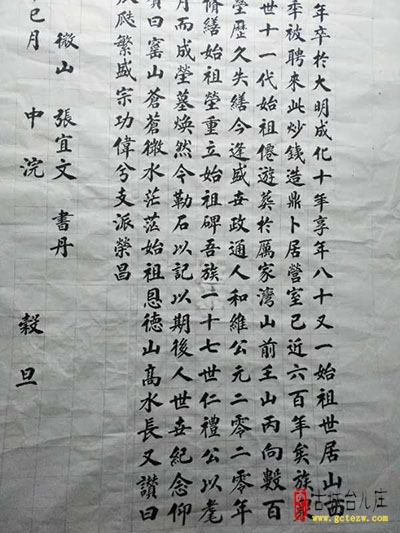 年卒於大明成化十年享年八十又一始祖世居山西
奉被聘來此炒錢造鼎卜居營室已近六百年矣族
世十一代始祖僊遊葬於厲家灣山前壬山丙向數百
塋歷久失繕今逢盛世政通人和維公元二零二零年
脩繕始祖塋重立始祖碑吾族一十七世仁禮公以耄
月而成塋墓煥然今勒石以記以期後人世世紀念仰
曰窰山蒼蒼微水茫茫始祖恩德山高水長又讚曰
瓞繁盛宗功偉兮支派榮昌
微山 張宜文 書丹
巳月 中浣 穀旦
台儿庄
www.gctezw.com